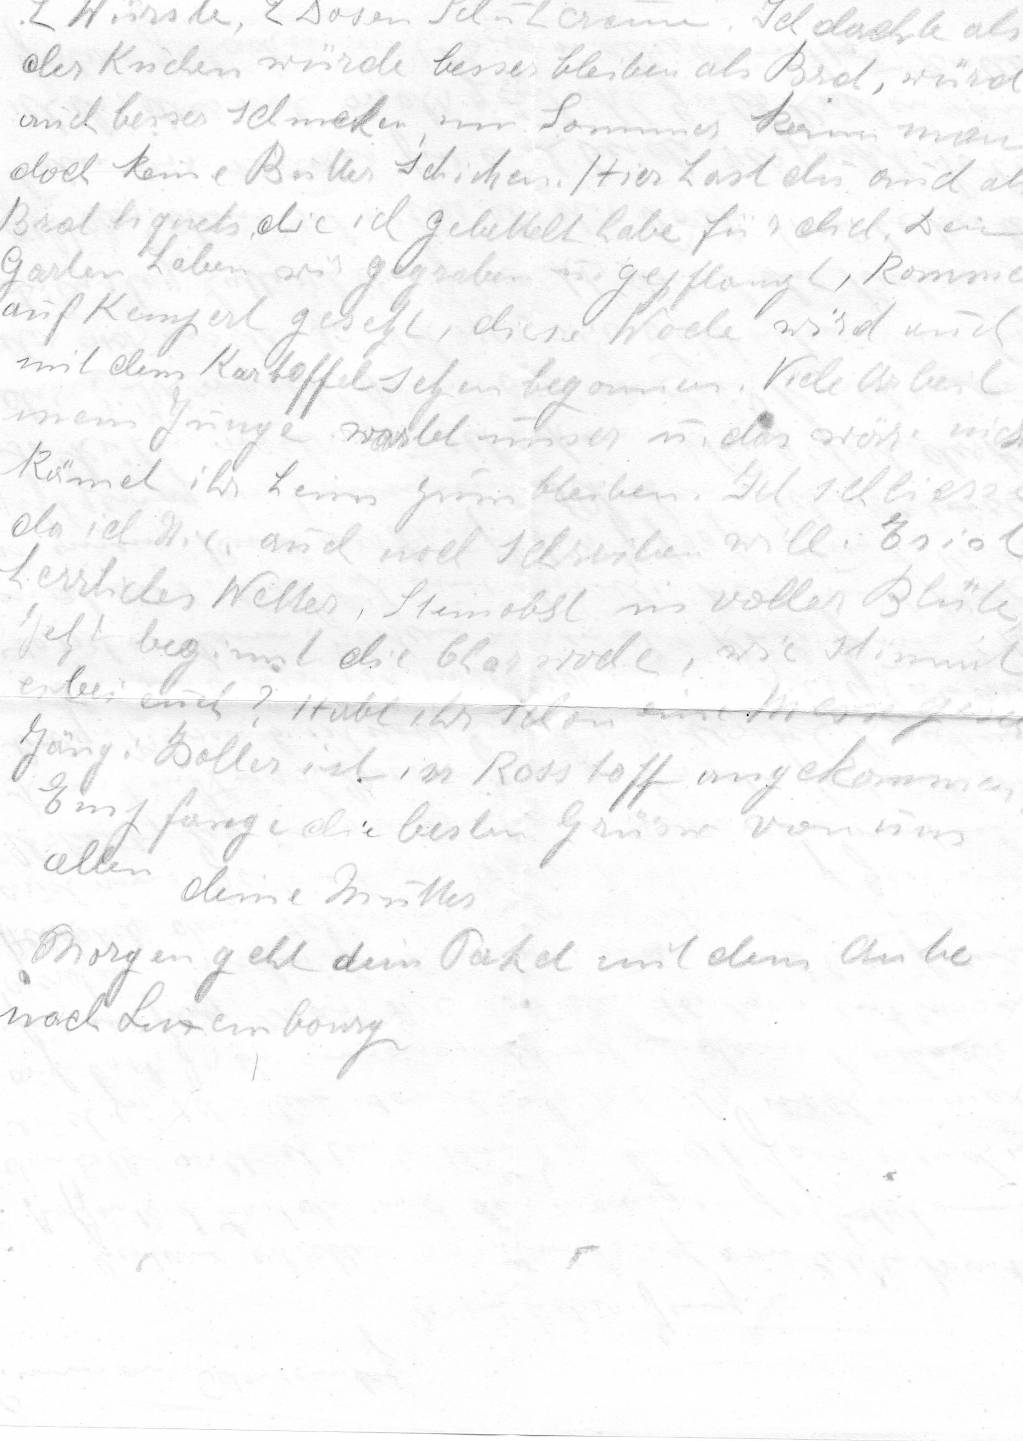 2 Würste, 2 Dosen Schuhcreme. Ich dachte als
der Kuchen würde besser bleiben als Brod, würd
auch besser schmeken, im Sommer kann man
doch keine Butter schicken. Hier hast du auch
Brod tiquets, die ich gebettelt habe für dich. Dein
Garten haben wir gegraben u. gepflanzt,
auf Kempert gesetzt, diese Woche wird auch
mit dem Kartoffel setzen begonnen. Viele Arbeit
mein Junge wartet unser u. das wäre
kämet ihr heim zum bleiben. Ich schliesse
da ich Nic. auch noch schreiben will. Es ist
herrliches Wetter, Steinobst in voller Blüte,
Jetzt beginnt die Charwoche, wie stimmt
es bei euch? Habt ihr schon eine Messe
Jäng. Boller ist in Rosstoff angekommen.
Empfange die besten Grüsse von uns
allen deine Mutter
Morgen geht dein Paket mit dem
nach Luxembourg